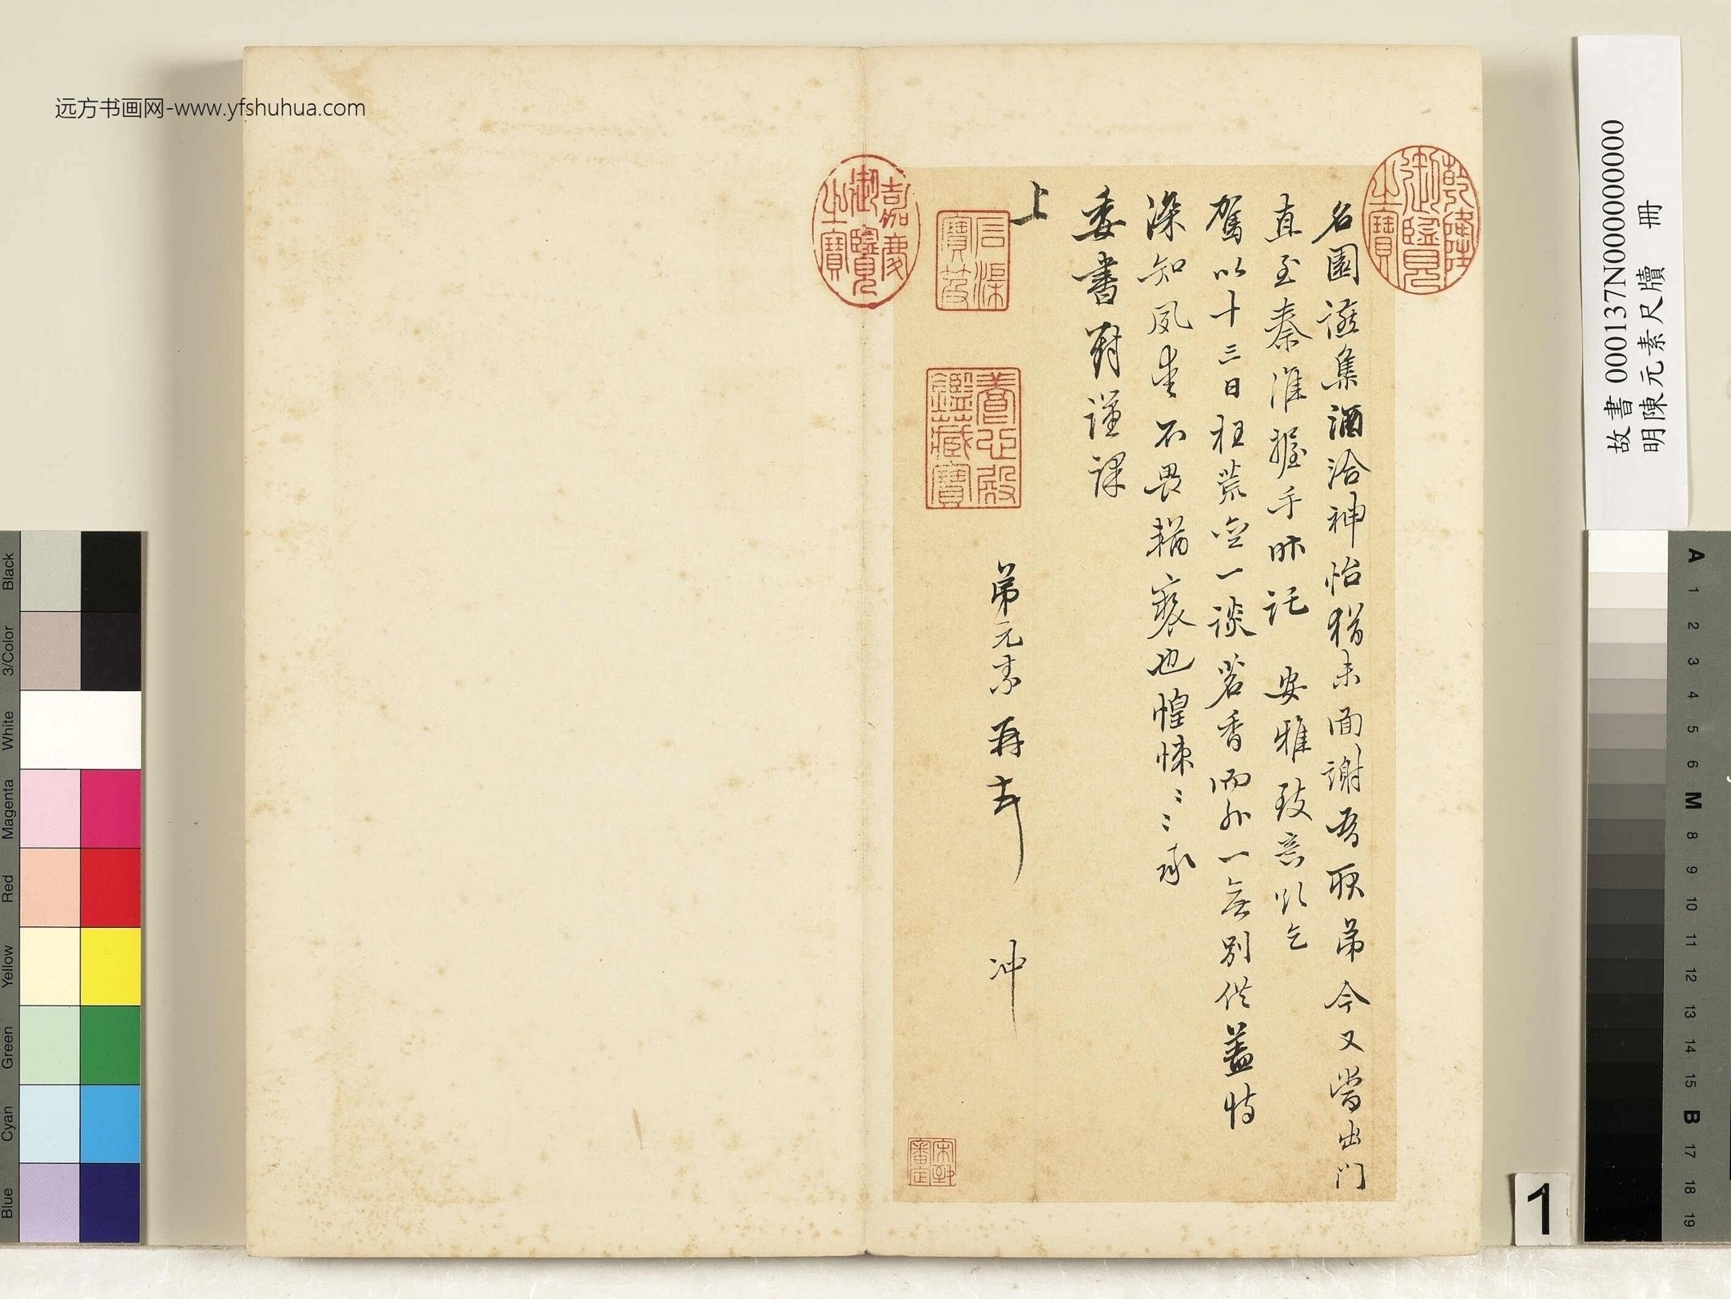 名園讌集酒洽神怡猶未面謝吾耿弟今又當出門
直至秦淮握手時託 安雅致意
駕以十三日枉荒
一談茗香而外一無別供蓋恃
深知夙 不畏 褻也惶悚〻〻承
委書對謹課
上
弟元素再
冲
乾隆御覽之寶
嘉慶御覽之寶
石渠寶笈
養心殿鑑藏寶
远方书画网-www.yfshuhua.com
故書 000137N000000000
明陳元素尺牘 冊
1
Black
3/Color
White
Magenta
Red
Yellow
Green
Cyan
Blue
A
1
2
3
4
5
6
M
8
9
10
11
12
13
14
15
B
17
18
19